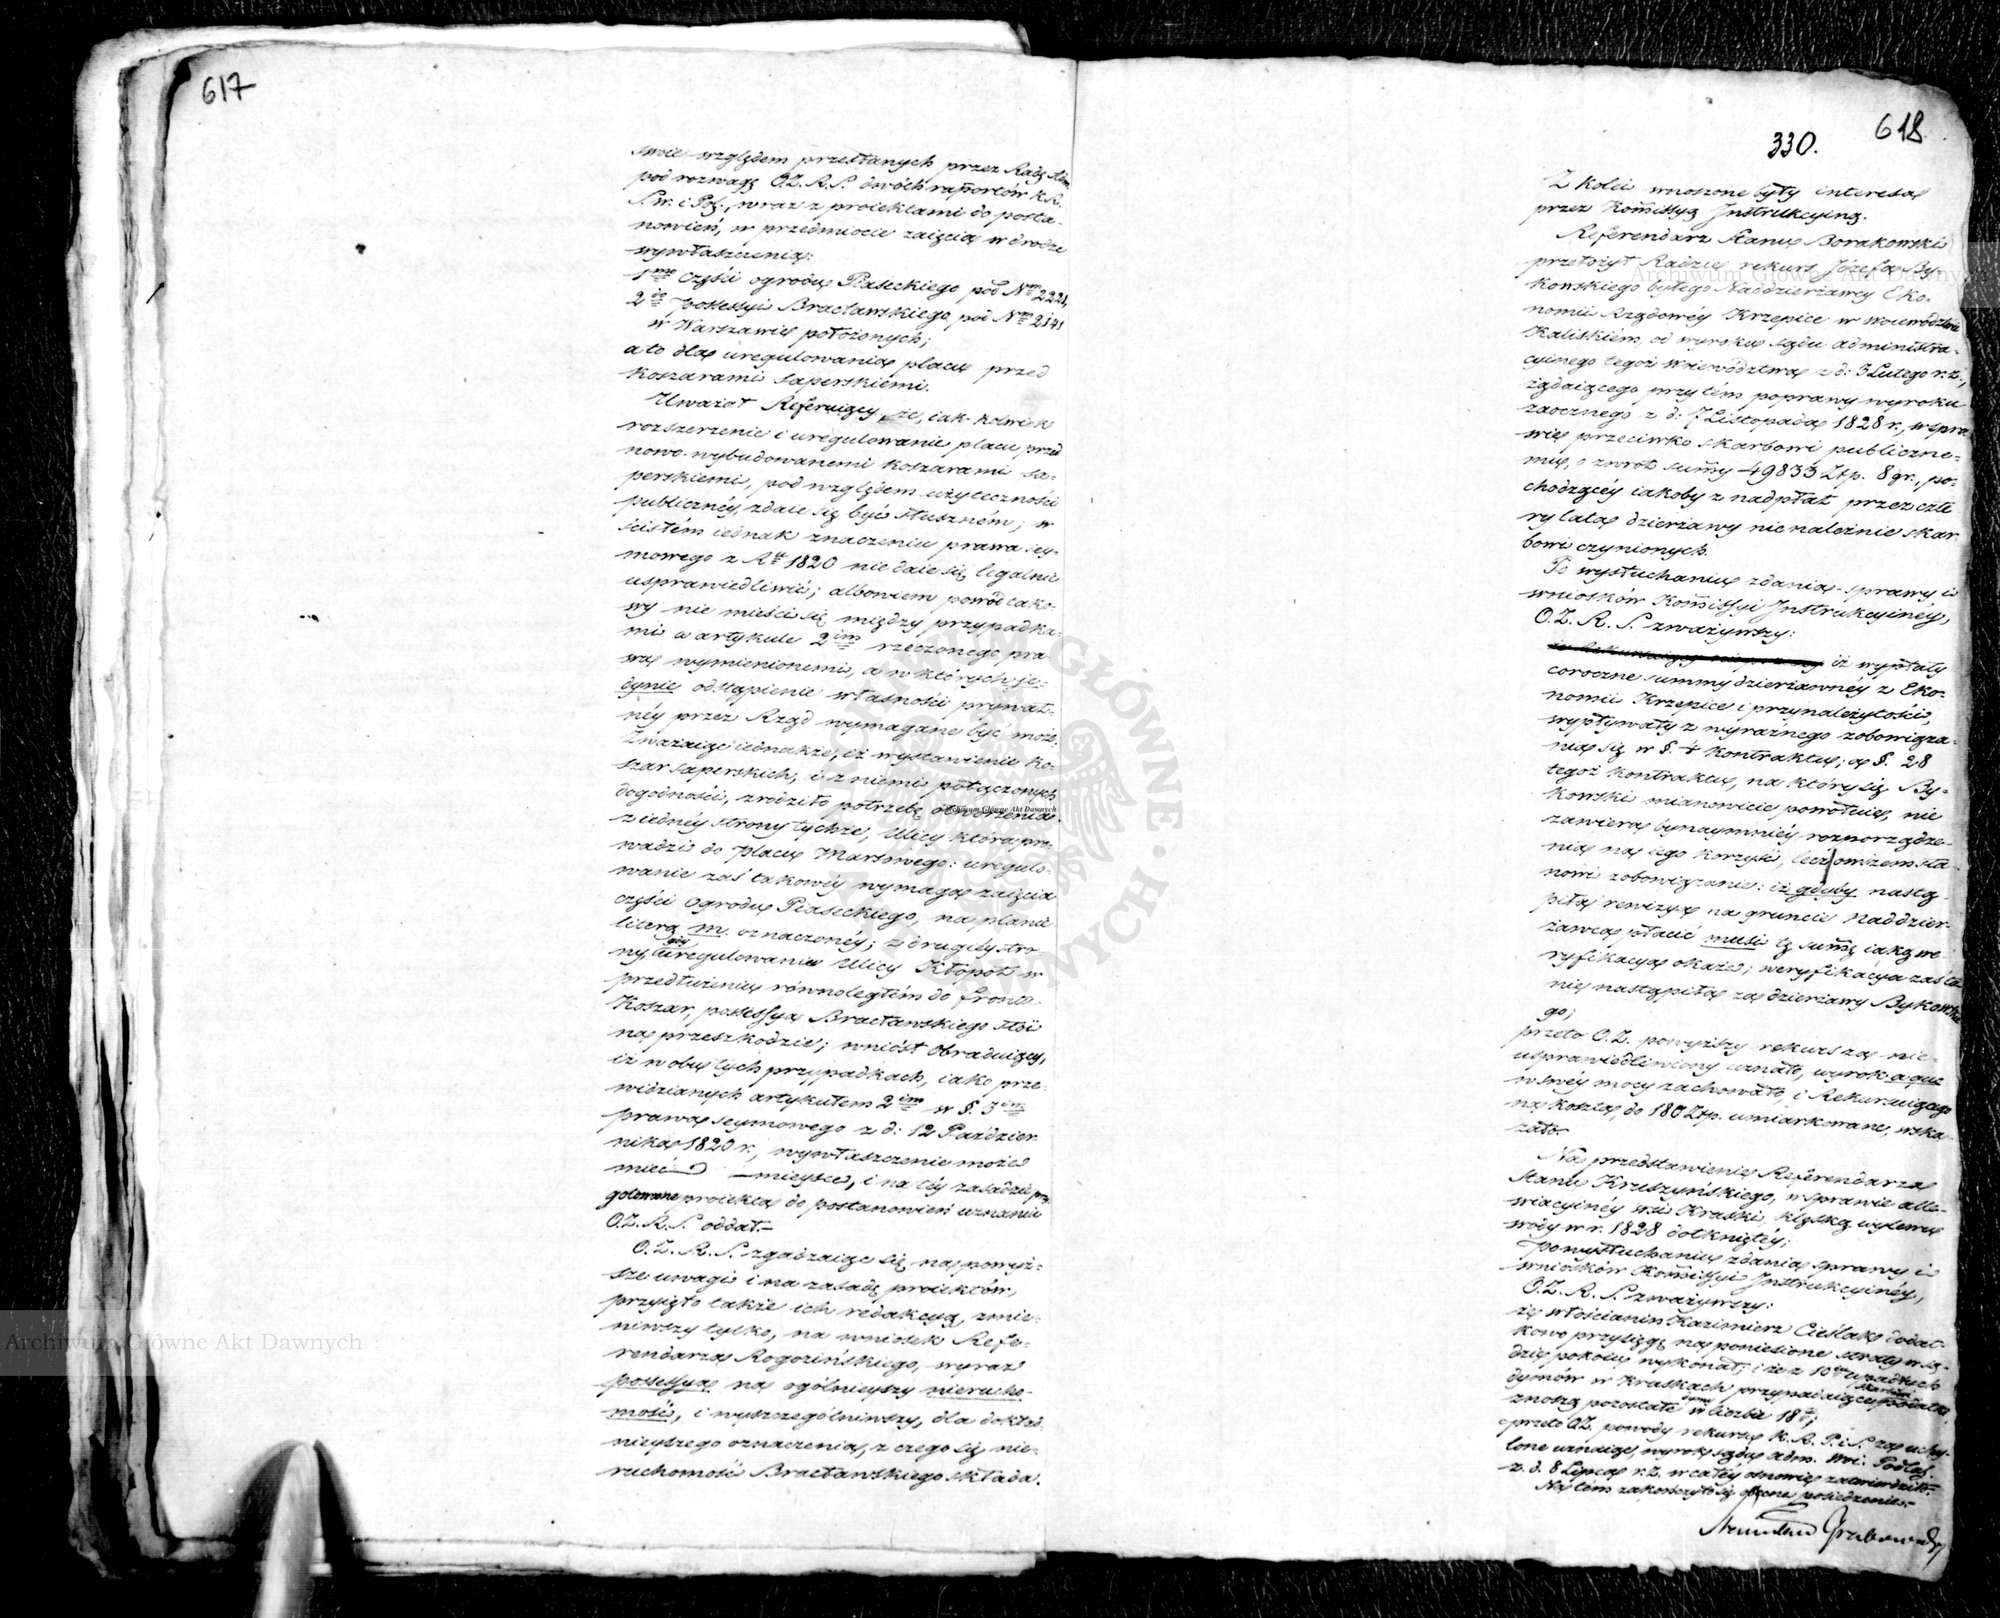 617
swoie względem przesłanych przez Radę Adm.
pod rozwagę O.Z.R.S. dwóch raportów K.R.
S.W. i Pol., wraz z proiektami do posta-
nowień, w przedmiocie zaięcia w drodze
wywłaszczenia:
1mo Części ogrodu Piaseckiego pod Nrm 2221,
2do possessyi Bracławskiego pod Nrm 2141
w Warszawie położonych;
a to dla uregulowania placu przed
koszarami saperskiemi.
Uważał Referuiący, że, iak-kolwiek
rozszerzenie i uregulowanie placu przed
nowo-wybudowanemi koszarami sa-
perskiemi, pod względem użyteczności
publicznéy, zdaie się być słuszném; w
ścisłém iednak znaczeniu prawa sey-
mowego z R. 1820 nie daie się legalnie
usprawiedliwić; albowiem powód tako-
wy nie mieści się między przypadka-
mi w artykule 2im rzeczonego pra-
wa wymienionemi, a w których je-
dynie odstąpienie własności prywat-
néy przez Rząd wymagane być może.
Zważaiąc iednakże, iż wystawienie ko-
szar saperskich, i z niemi połączonych
dogodności, zrodziło potrzebę otworzenia
z iednéy strony tychże, Ulicy która pro-
wadzi do placu Marsowego: uregulo-
wanie zaś takowéy wymaga zaięcia
części Ogrodu Piaseckiego, na planie
literą m. oznaczonéy; z drugiéy stro-
ny, gdy uregulowaniu Ulicy Kłopot w
przedłużeniu równoległém do frontu
Koszar, possessya Bracławskiego stoi
na przeszkodzie; wniósł Obraduiący,
iż w obu tych przypadkach, iako prze-
widzianych artykułem 2im w §. 3im
prawa seymowego z d: 12 Paździer-
nika 1820 r., wywłaszczenie może
mieć miejsce, i na téy zasadzie przy-
gotowane proiekta do postanowień uznaniu
O.Z.R.S. oddał.
O.Z.R.S. zgadzaiąc się na powyż-
sze uwagi i na zasadę proiektów,
przyięło także ich redakcyą, zmie-
niwszy tylko, na wniosek Refe-
rendarza Rogozińskiego, wyraz
possessya na ogólnieyszy nierucho-
mość, i wyszczególniwszy, dla dokład-
nieyszego oznaczenia, z czego się nie-
ruchomość Bracławskiego składa.
618
330.
Z kolei wnoszone były interesa
przez Kom̃issyą Instrukcyiną.
Referendarz Stanu Borakowski
przełożył Radzie rekurs Józefa By-
kowskiego byłego Naddzierżawcy Eko-
nomii Rządowéy Krzepice w Woiewództwie
Kaliskiém, od wyroku sądu administra-
cyinego tegoż Woiewództwa z d: 3 Lutego r.z.,
żądaiącego przytém poprawy wyroku
zaocznego z d: 7 Listopada 1828 r., w spra-
wie przeciwko skarbowi publiczne-
mu, o zwrot sum̃y 49833 Złp. 8 gr., po-
chodzącéy iakoby z nadpłat przez czte-
ry lata dzierżawy nienależnie skar-
bowi czynionych.
Po wysłuchaniu zdania-sprawy i
wniosków Kom̃issyi Instrukcyinéy,
O.Z.R.S. zważywszy:
iż wypłaty
coroczne summy dzierżawnéy z Eko-
nomii Krzepice i przynależytości,
wypływały z wyraźnego zobowiąza-
nia się w §. 4 kontraktu; a §. 28
tegoż kontraktu, na który się By-
kowski mianowicie powołuie, nie
zawiera bynaymniéy rozporządze-
nia na iego korzyść, lecz owszem sta-
nowi zobowiązanie: iż gdyby nastą-
piła rewizya na gruncie Naddzier-
żawca płacić musi tę sum̃ę iaką we-
ryfikacya okaże; weryfikacya zaś ta
nie nastąpiła za dzierżawy Bykowskie-
go;
przeto O.Z. powyższy rekurs za nie-
usprawiedliwiony uznało, wyrok a quo
w swéy mocy zachowało, i Rekuruiącego
na koszta, do 180 Złp. umiarkowane, wska-
zało.
Na przedstawienie Referendarza
Stanu Kruszyńskiego, w sprawie alle-
wiacyinéy wsi Kraski, klęską wylewu
wody w r. 1828 dotkniętéy;
po wysłuchaniu zdania sprawy i
wniosków Kom̃issyi Instrukcyinéy,
O.Z.R.S. zważywszy:
że włościanin Kazimierz Cieślak dodat-
kowo przysięgę na poniesione straty w są-
dzie pokoiu wykonał; i że z 10ciu upadłych
dymów w Kraskach przypadaiące skarbowi podatki,
znoszą pozostałe dymy w liczbie 18;
przeto O.Z. powody rekursu K.R.P. i S. za uchy-
lone uznaiąc, wyrok sądu adm. Woi. Podlas.
z d. 8 Lipca r.z. w całéy osnowie zatwierdziło.
Na tém zakończyło się obecne posiedzenie.
Stanisław Grabowski